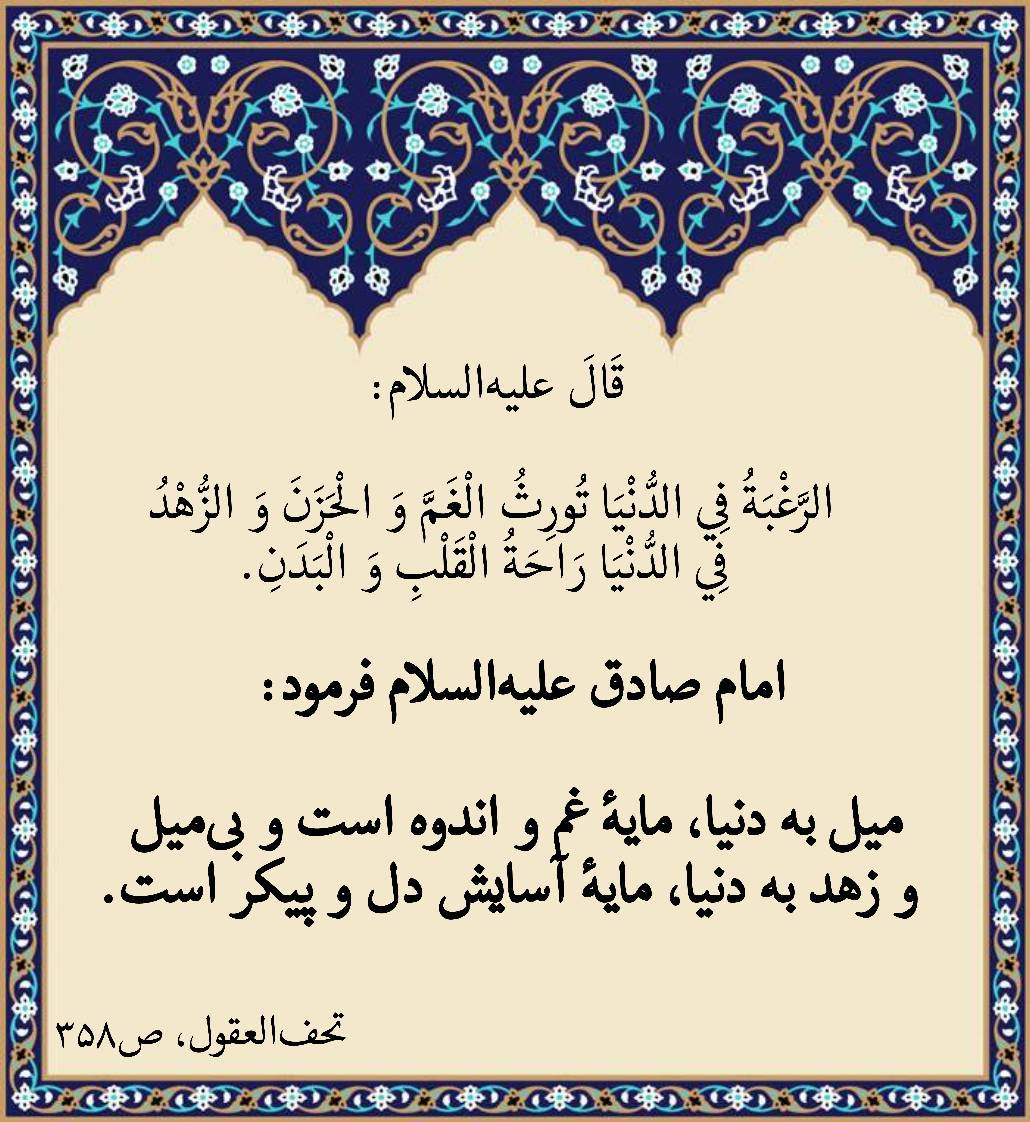 قَالَ علیه‌السلام:
الرَّغْبَةُ فِي الدُّنْيَا تُورِثُ الْغَمَّ وَ الْحَزَنَ وَ الزُّهْدُ
فِي الدُّنْيَا رَاحَةُ الْقَلْبِ وَ الْبَدَنِ.
امام صادق علیه‌السلام فرمود:
میل به دنیا، مایهٔ غم و اندوه است و بی‌میل
و زهد به دنیا، مایهٔ آسایش دل و پیکر است.
تحف‌العقول، ص۳۵۸